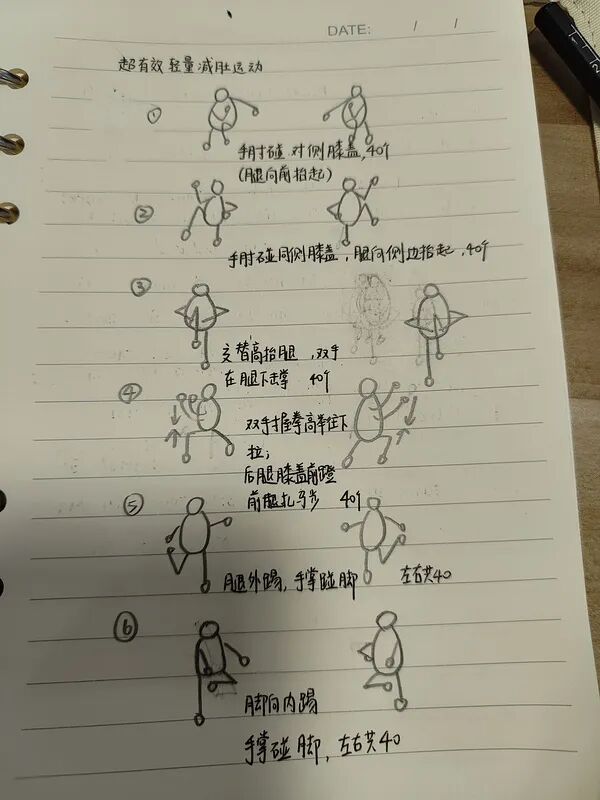 DATE: / /
超有效轻量减肚运动
①
手肘碰对侧膝盖,40个
(腿向前抬起)
②
手肘碰同侧膝盖,腿向侧边抬起,40个
③
交替高抬腿,双手
在腿下击掌 40个
④
双手握拳高举往下
拉;
后腿膝盖前蹬
前腿扎马步 40个
⑤
腿外踢,手掌碰脚 左右共40
⑥
脚向内踢
手掌碰脚,左右共40
1 2